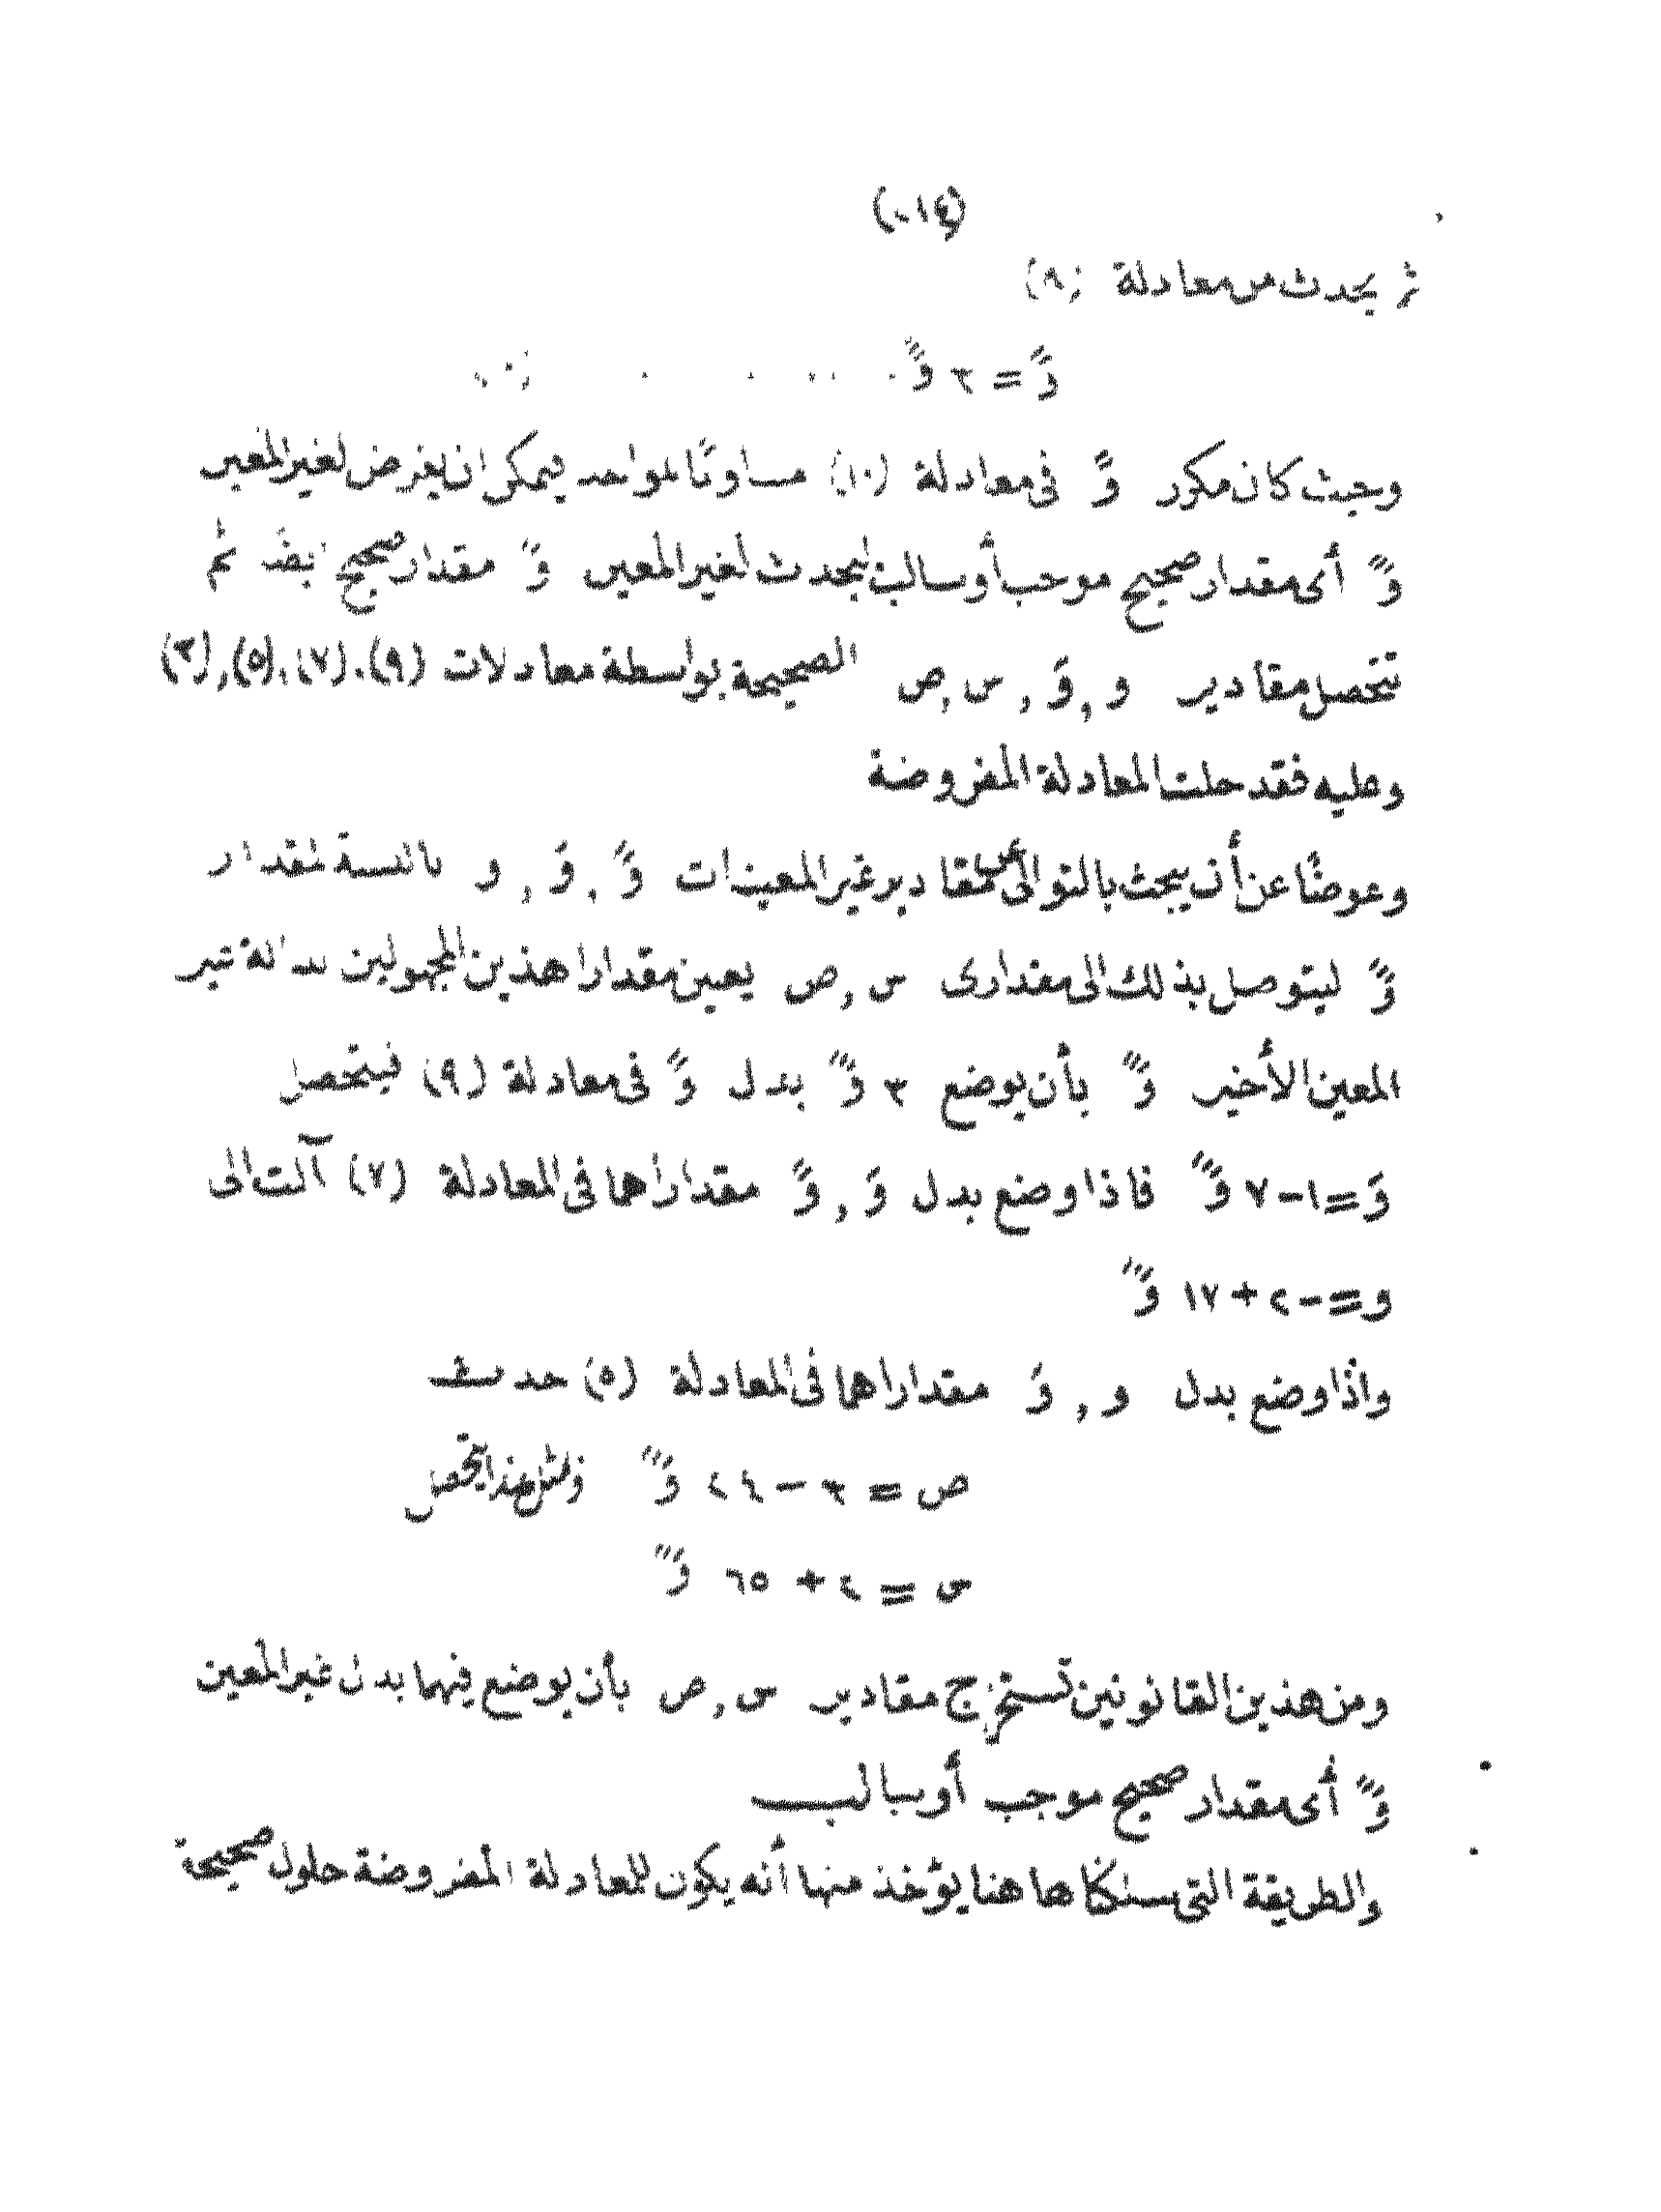 (٤١٠)
ثم يحدث من معادلة (٩)
وً = ٣ وًَ . . . . . (١٠)
وحيث كان مكرر وً فى معادلة (١٠) مساويًا للواحد فيمكن ان يفرض لغير المعين
وًَ أى مقدار صحيح موجب أو سالب ليحدث لغير المعين وً مقدار صحيح ايضًا ثم
تتحصل مقادير و , وَ , س , ص الصحيحة بواسطة معادلات (٩) . (٧) . (٥) , (٣)
وعليه فقد حلت المعادلة المفروضة
وعوضًا عن أن يبحث بالتوالى عن مقادير غير المعينات وً . وَ , و بالنسبة لمقدار
وًَ ليتوصل بذلك الى مقدارى س , ص يعين مقدارا هذين المجهولين بدلالة غير
المعين الأخير وًَ بأن يوضع ٣ وًَ بدل وً فى معادلة (٩) فيتحصل
وَ = ١ - ٧ وًَ فاذا وضع بدل وَ , وً مقداراهما فى المعادلة (٧) آلت الى
و = - ٢ + ١٧ وًَ
واذا وضع بدل و , وَ مقداراهما فى المعادلة (٥) حدث
ص = ٣ - ٢٤ وًَ وبمثل هذا يتحصل
س = ٤ + ٦٥ وًَ
ومن هذين القانونين تستخرج مقادير س , ص بأن يوضع فيهما بدل غير المعين
وًَ أى مقدار صحيح موجب أو سالب
والطريقة التى سلكناها هنا يؤخذ منها أنه يكون للمعادلة المفروضة حلول صحيحة